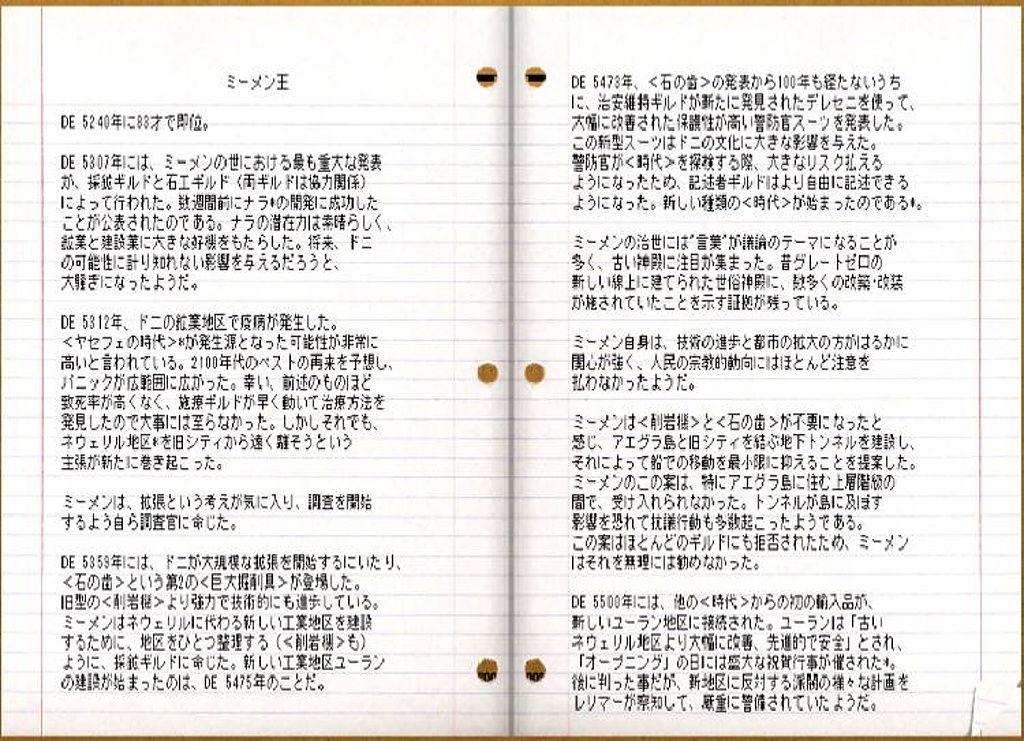 ミーメン王
DE 5240年に83才で即位。
DE 5307年には、ミーメンの世における最も重大な発表
が、採鉱ギルドと石工ギルド（両ギルドは協力関係）
によって行われた。数週間前にナラ*の開発に成功した
ことが公表されたのである。ナラの潜在力は素晴らしく、
鉱業と建設業に大きな好機をもたらした。将来、ドニ
の可能性に計り知れない影響を与えるだろうと、
大騒ぎになったようだ。
DE 5312年、ドニの鉱業地区で疫病が発生した。
＜ヤセフェの時代＞*が発生源となった可能性が非常に
高いと言われている。2100年代のペストの再来を予想し、
パニックが広範囲に広がった。幸い、前述のものほど
致死率が高くなく、施療ギルドが早く動いて治療方法を
発見したので大事には至らなかった。しかしそれでも、
ネウェリル地区*を旧シティから遠く離そうという
主張が新たに巻き起こった。
ミーメンは、拡張という考えが気に入り、調査を開始
するよう自ら調査官に命じた。
DE 5359年には、ドニが大規模な拡張を開始するにいたり、
＜石の歯＞という第2の＜巨大掘削具＞が登場した。
旧型の＜削岩機＞より強力で技術的にも進歩している。
ミーメンはネウェリルに代わる新しい工業地区を建設
するために、地区をひとつ整理する（＜削岩機＞も）
ように、採鉱ギルドに命じた。新しい工業地区ユーラン
の建設が始まったのは、DE 5475年のことだ。
DE 5473年、＜石の歯＞の発表から100年も経たないうち
に、治安維持ギルドが新たに発見されたデレセニを使って、
大幅に改善された保護性が高い警防官スーツを発表した。
この新型スーツはドニの文化に大きな影響を与えた。
警防官が＜時代＞を探検する際、大きなリスク払える
ようになったため、記述者ギルドはより自由に記述できる
ようになった。新しい種類の＜時代＞が始まったのである*。
ミーメンの治世には"言葉"が議論のテーマになることが
多く、古い神殿に注目が集まった。昔グレートゼロの
新しい線上に建てられた世俗神殿に、数多くの改築・改装
が施されていたことを示す証拠が残っている。
ミーメン自身は、技術の進歩と都市の拡大の方がはるかに
関心が強く、人民の宗教的動向にはほとんど注意を
払わなかったようだ。
ミーメンは＜削岩機＞と＜石の歯＞が不要になったと
感じ、アエグラ島と旧シティを結ぶ地下トンネルを建設し、
それによって船での移動を最小限に抑えることを提案した。
ミーメンのこの案は、特にアエグラ島に住む上層階級の
間で、受け入れられなかった。トンネルが島に及ぼす
影響を恐れて抗議行動も多数起こったようである。
この案はほとんどのギルドにも拒否されたため、ミーメン
はそれを無理には勧めなかった。
DE 5500年には、他の＜時代＞からの初の輸入品が、
新しいユーラン地区に接続された。ユーランは「古い
ネウェリル地区より大幅に改善、先進的で安全」とされ、
「オープニング」の日には盛大な祝賀行事が催された*。
後に判った事だが、新地区に反対する派閥の様々な計画を
レリマーが察知して、厳重に警備されていたようだ。